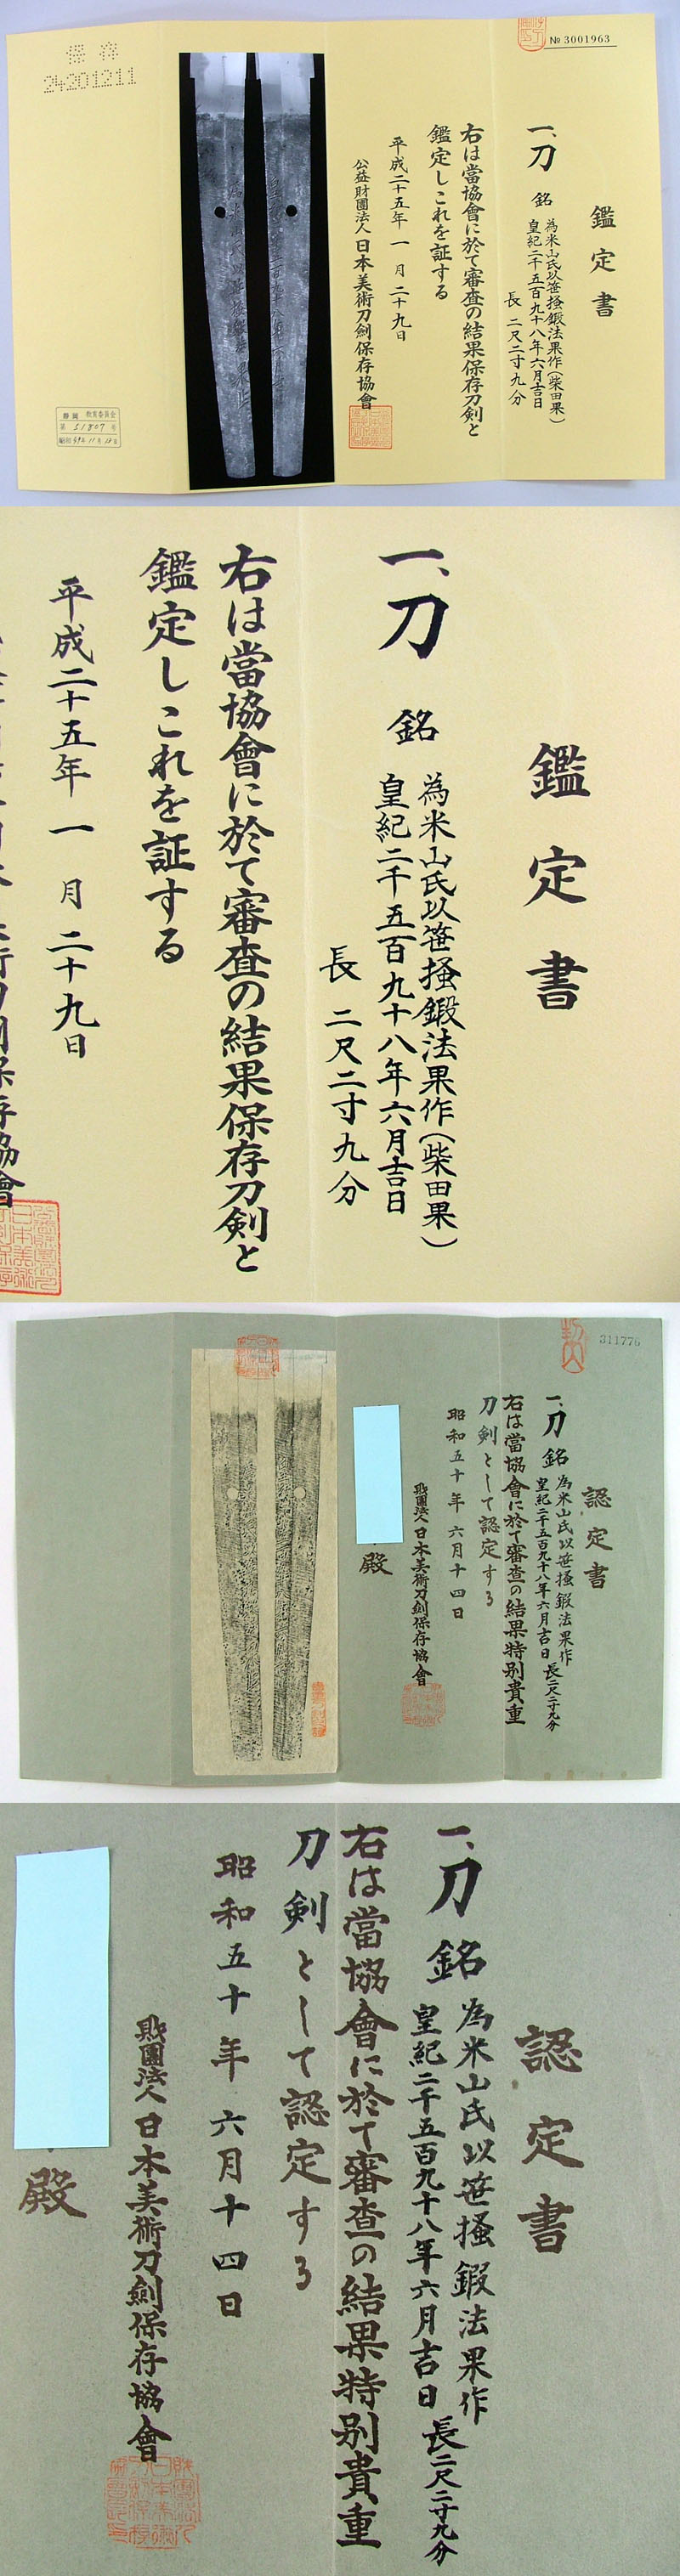 № 3001963
鑑定書
一、刀 銘 為米山氏以笹掻鍛法果作(柴田果)
皇紀二千五百九十八年六月吉日
長 二尺二寸九分
右は當協會に於て審査の結果保存刀剣と
鑑定しこれを証する
平成二十五年 一 月 二十九日
公益財團法人 日本美術刀劍保存協會
24201211
教育委員会
第 51807 号
鑑定書
一、刀 銘 為米山氏以笹掻鍛法果作(柴田果)
皇紀二千五百九十八年六月吉日
長 二尺二寸九分
右は當協會に於て審査の結果保存刀剣と
鑑定しこれを証する
平成二十五年 一 月 二十九日
311776
認定書
一、刀 銘 為米山氏以笹掻鍜法果作
皇紀二千五百九十八年六月吉日 長二尺二寸九分
右は當協會に於て審査の結果特別貴重
刀剣として認定する
昭和五十年 六月十四日
財團法人 日本美術刀劍保存協會
殿
認定書
一、刀 銘 為米山氏以笹掻鍜法果作
皇紀二千五百九十八年六月吉日 長二尺二寸九分
右は當協會に於て審査の結果特別貴重
刀剣として認定する
昭和五十年 六月十四日
財團法人 日本美術刀劍保存協會
殿